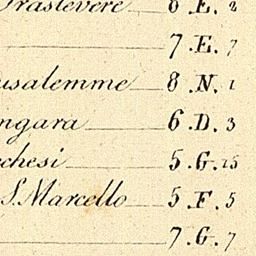 Trastevere 6.E. 2
7.E. 7
usalemme 8.N. 1
ngara 6.D. 3
chesi 5.G. 15
S. Marcello 5.F. 5
7.G. 7